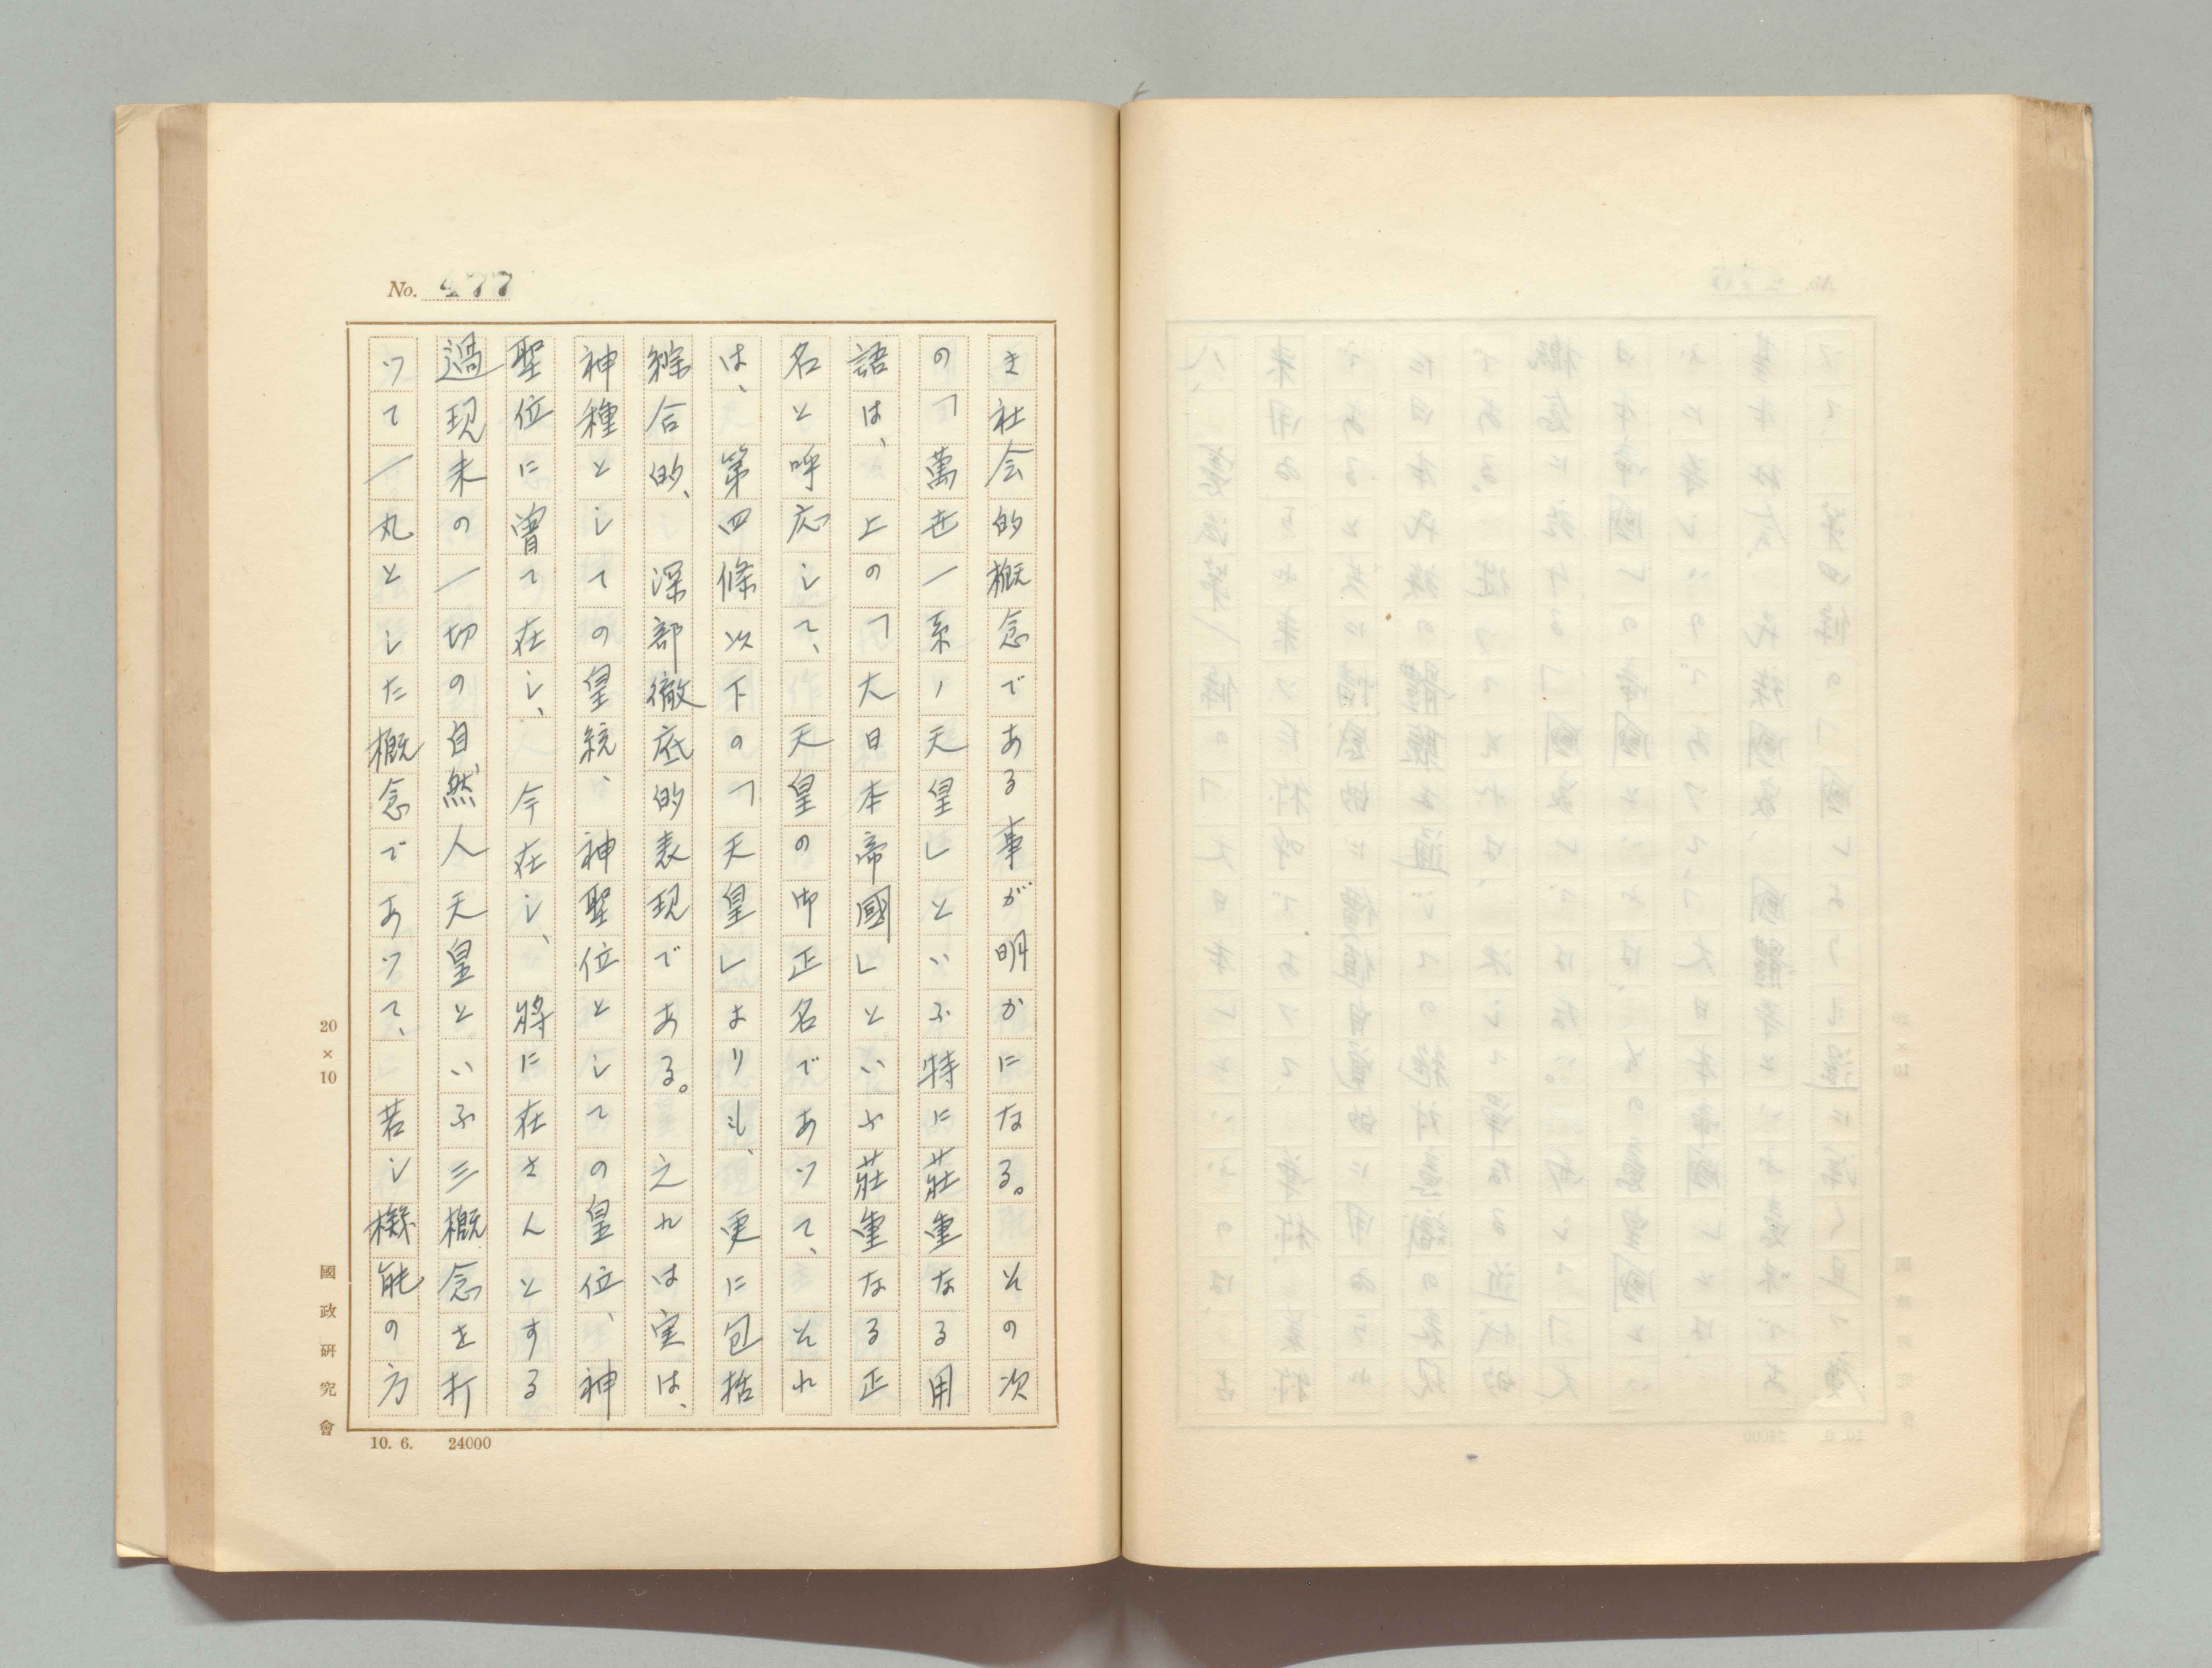 No. 477
き社会的概念である事が明かになる。その次
の「萬世一系ノ天皇」といふ特に莊重なる用
語は、上の「大日本帝國」といふ莊重なる正
名と呼応して、天皇の御正名であツて、それ
は、第四條以下の「天皇」よりも、更に包括
綜合的、深部徹底的表現である。之れは実は、
神種としての皇統、神聖位としての皇位、神
聖位に曾て在し、今在し、將に在さんとする
過現未の一切の自然人天皇といふ三概念を打
ツて一丸とした概念であツて、若し機能の方
20×10
國政研究會
10. 6. 24000